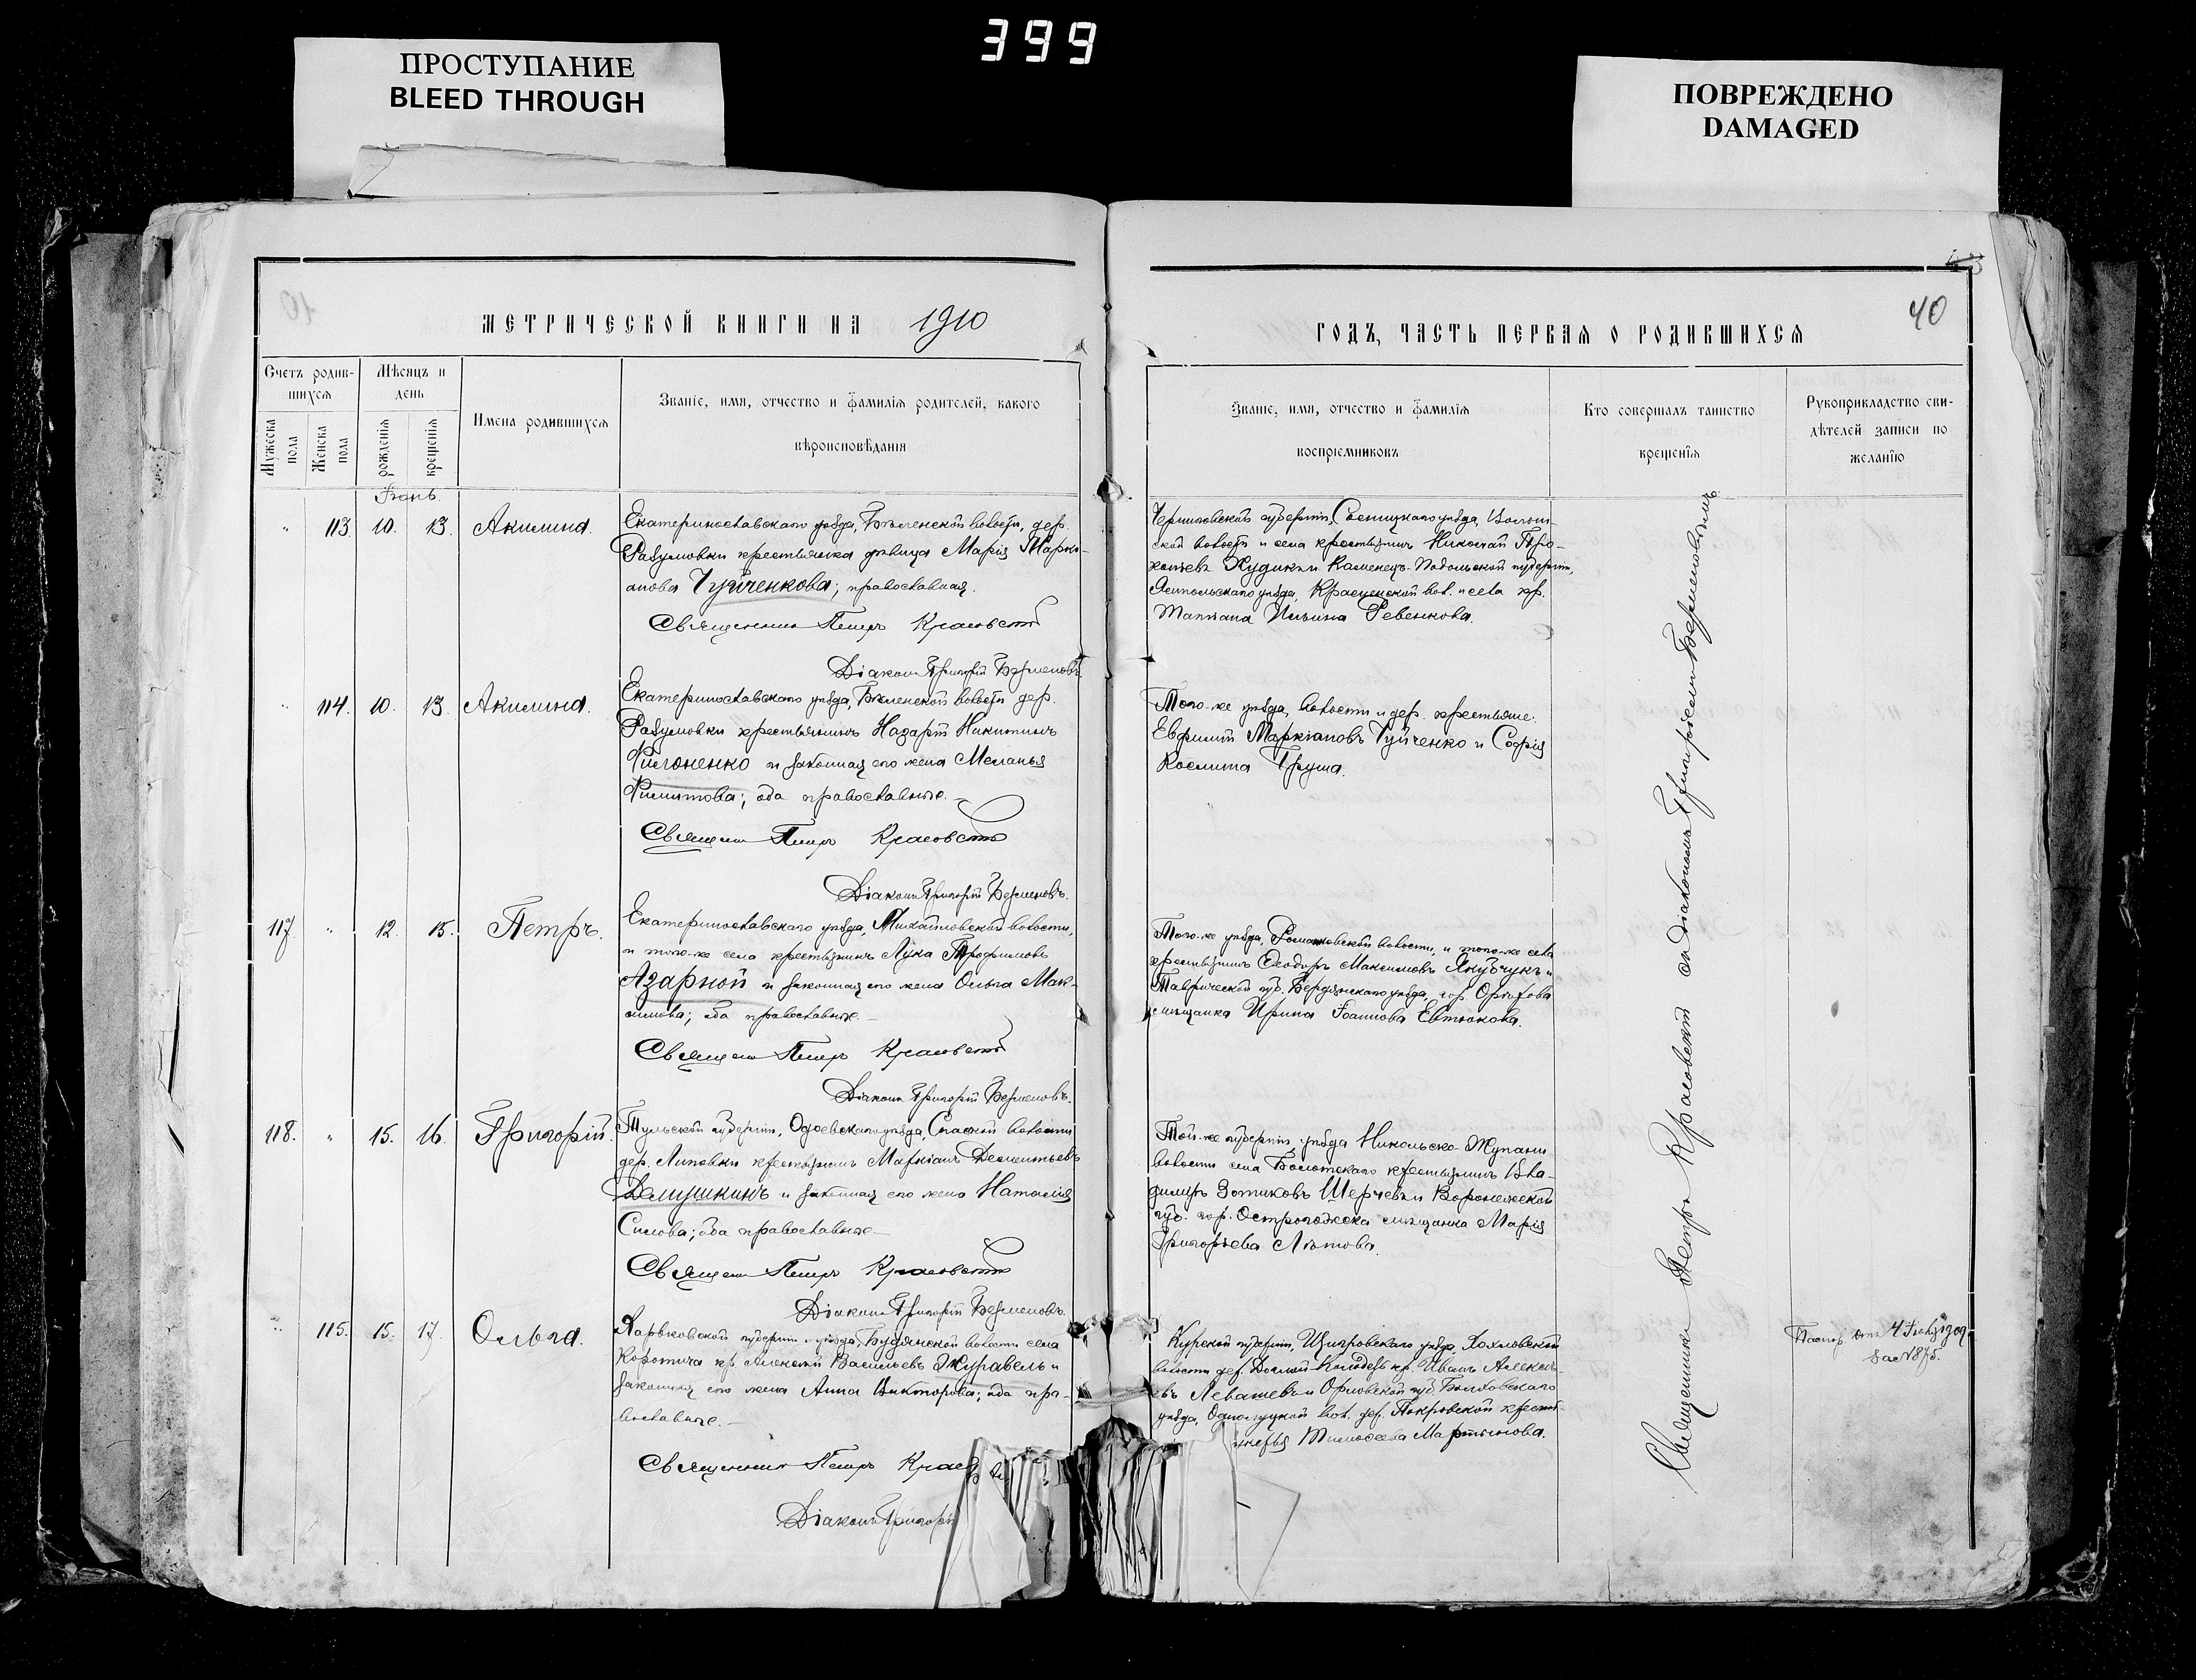 399
ПРОСТУПАНИЕ
BLEED THROUGH
ПОВРЕЖДЕНО
DAMAGED
МЕТРИЧЕСКОЙ КНИГИ НА 1910
Счетъ родив-
шихся
Мѣсяцъ и
день
Мужеска
пола
Женска
пола
рожденія
крещенія
Имена родившихся
Званіе, имя, отчество и фамилія родителей, какого
вѣроисповѣданія
113. 10. 13. Акилина.
Екатеринославскаго уѣзда, Бѣленской волости, дер.
Разумовки крестьянка дѣвица Марія Марки-
анова Чуйченкова; православная.
Священникъ Петръ Красовскій
Діаконъ Григорій
114. 10. 13. Акилина.
Екатеринославскаго уѣзда, Бѣленской волости дер.
Разумовки крестьянинъ Назарій Никитинъ
Филоненко и законная его жена Меланья
Филиппова; оба православные.
Священникъ Петръ Красовскій
Діаконъ Григорій
117. 12. 15. Петръ.
Екатеринославскаго уѣзда, Михайловской волости,
и того-же села крестьянинъ Лука Трофимовъ
Азарной и законная его жена Ольга Мак-
симова; оба православные.
Священникъ Петръ Красовскій
Діаконъ Григорій
118. 15. 16. Григорій.
Тульской губерніи, Одоевскаго уѣзда, Спасской волости
дер. Липовки крестьянинъ Маркіанъ Дементьевъ
и законная его жена Наталія
Силова; оба православные.
Священникъ Петръ Красовскій
Діаконъ Григорій
115. 15. 17. Ольга.
Харьковской губерніи и уѣзда, Будянской волости села
Коротича кр. Алексѣй Васильевъ Журавель и
законная его жена Анна Викторова; оба пра-
вославные.
Священникъ Петръ
Діаконъ Григорій
ГОДЪ, ЧАСТЬ ПЕРВАЯ О РОДИВШИХСЯ
40
Званіе, имя, отчество и фамилія
воспріемниковъ
Кто совершалъ таинство
крещенія
Рукоприкладство сви-
дѣтелей записи по
желанію
Черниговской губерніи, Сосницкаго уѣзда,
ской волости и села крестьянинъ Николай Про-
копьевъ и Каменецъ-Подольской губерніи,
Ямпольскаго уѣзда, вол. и села кр.
Татіана Ильина Ревенкова.
Того-же уѣзда, волости и дер. крестьяне:
Евфимій Маркіановъ Чуйченко и Софія
Космина Груша.
Того-же уѣзда, волости, и того-же села
крестьянинъ Ѳеодоръ Максимовъ Якубчукъ и
Таврической губ. Бердянскаго уѣзда, гор. Орѣхова
мѣщанка Ирина Іоаннова Евтюкова.
Той-же губерніи, уѣзда Никольско-Жупани
волости села крестьянинъ Вла-
диміръ Зотиковъ и Воронежской
губ. гор. Острогожска мѣщанка Марія
Григорьева
Курской губерніи, Щигровскаго уѣзда, Хохловской
волости дер. кр. Иванъ Алексѣ-
евъ Левашевъ и Орловской губ. Болховскаго
уѣзда, Однолуцкой вол. дер. Покровской
Тимоѳеева Мартынова.
Священникъ Петръ Красовскій съ діакономъ Григоріемъ
Паспор. отъ
за № 875.